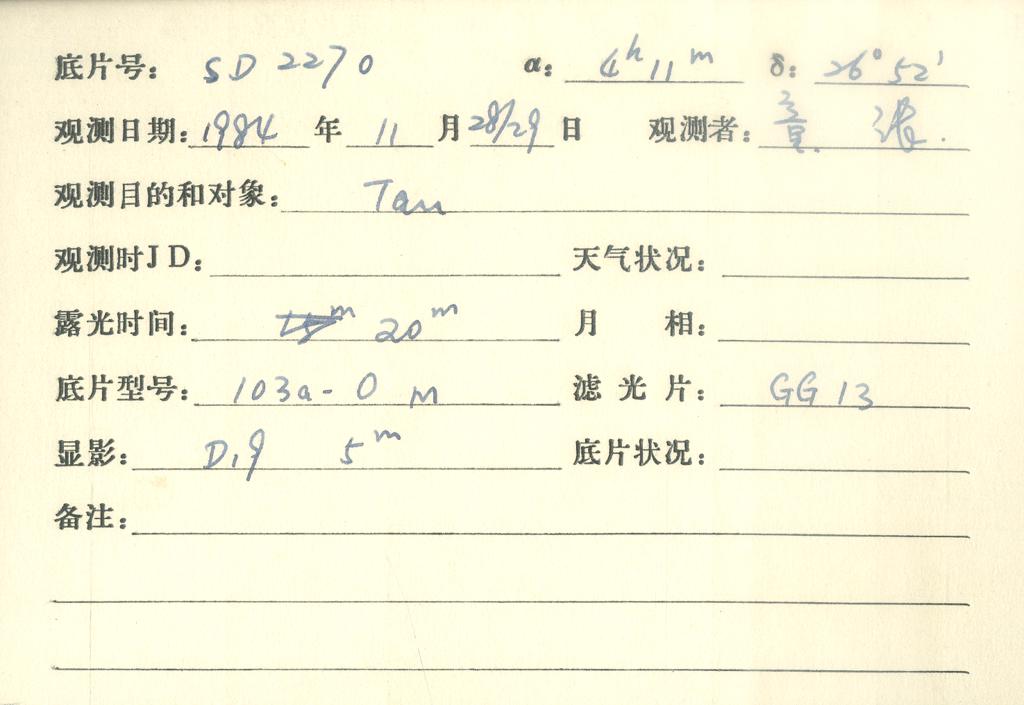 底片号: SD 2270 α: 4ʰ 11ᵐ δ: 26° 52'
观测日期: 1984 年 11 月 28/29 日 观测者: 童. 张.
观测目的和对象: Tau
观测时JD: 天气状况:
露光时间: 15ᵐ 20ᵐ 月 相:
底片型号: 103a-O M 滤光片: GG 13
显影: D19 5ᵐ 底片状况:
备注: